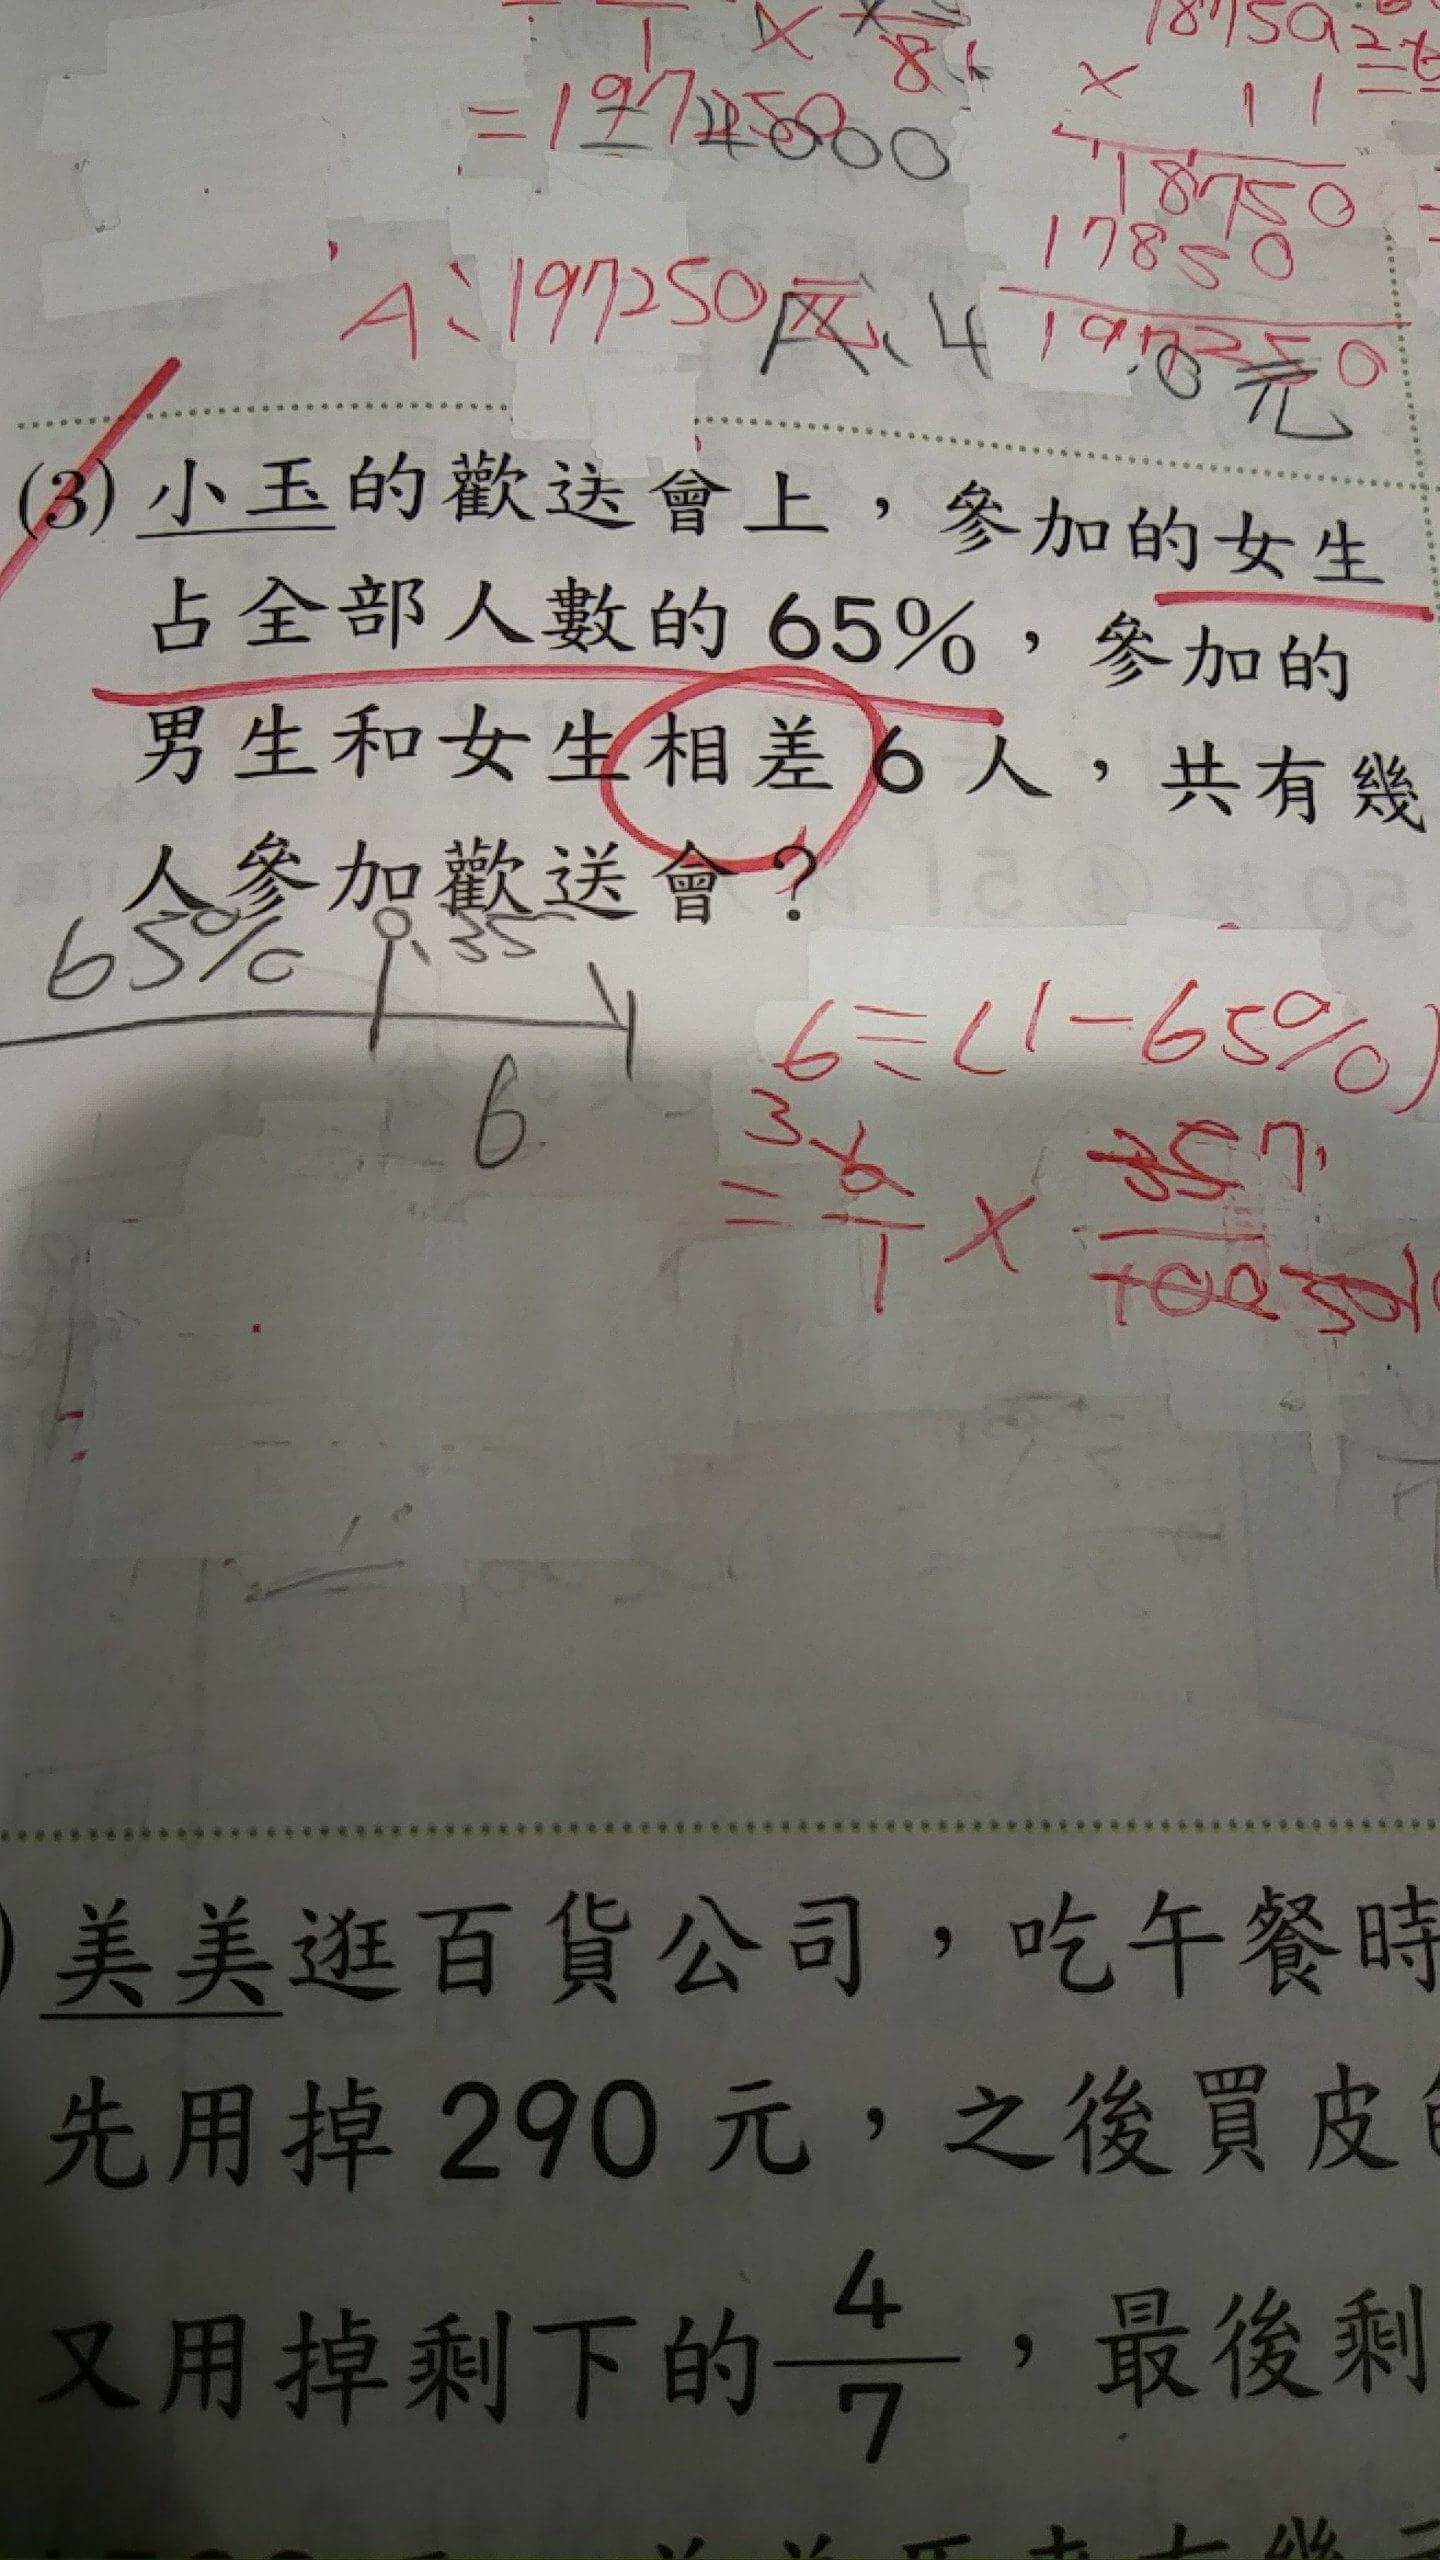 1 × 8
=197250
=4000
18750
× 11
18750
17850
197250
A:197250元
A:4
0元
(3) 小玉的歡送會上,參加的女生
占全部人數的 65%,參加的
男生和女生相差 6 人,共有幾
人參加歡送會?
65% 0.35
6
6÷(1-65%)
3 6 35 7
= ×
1 100 50
) 美美逛百貨公司,吃午餐時
先用掉 290 元,之後買皮
又用掉剩下的 4/7 ,最後剩